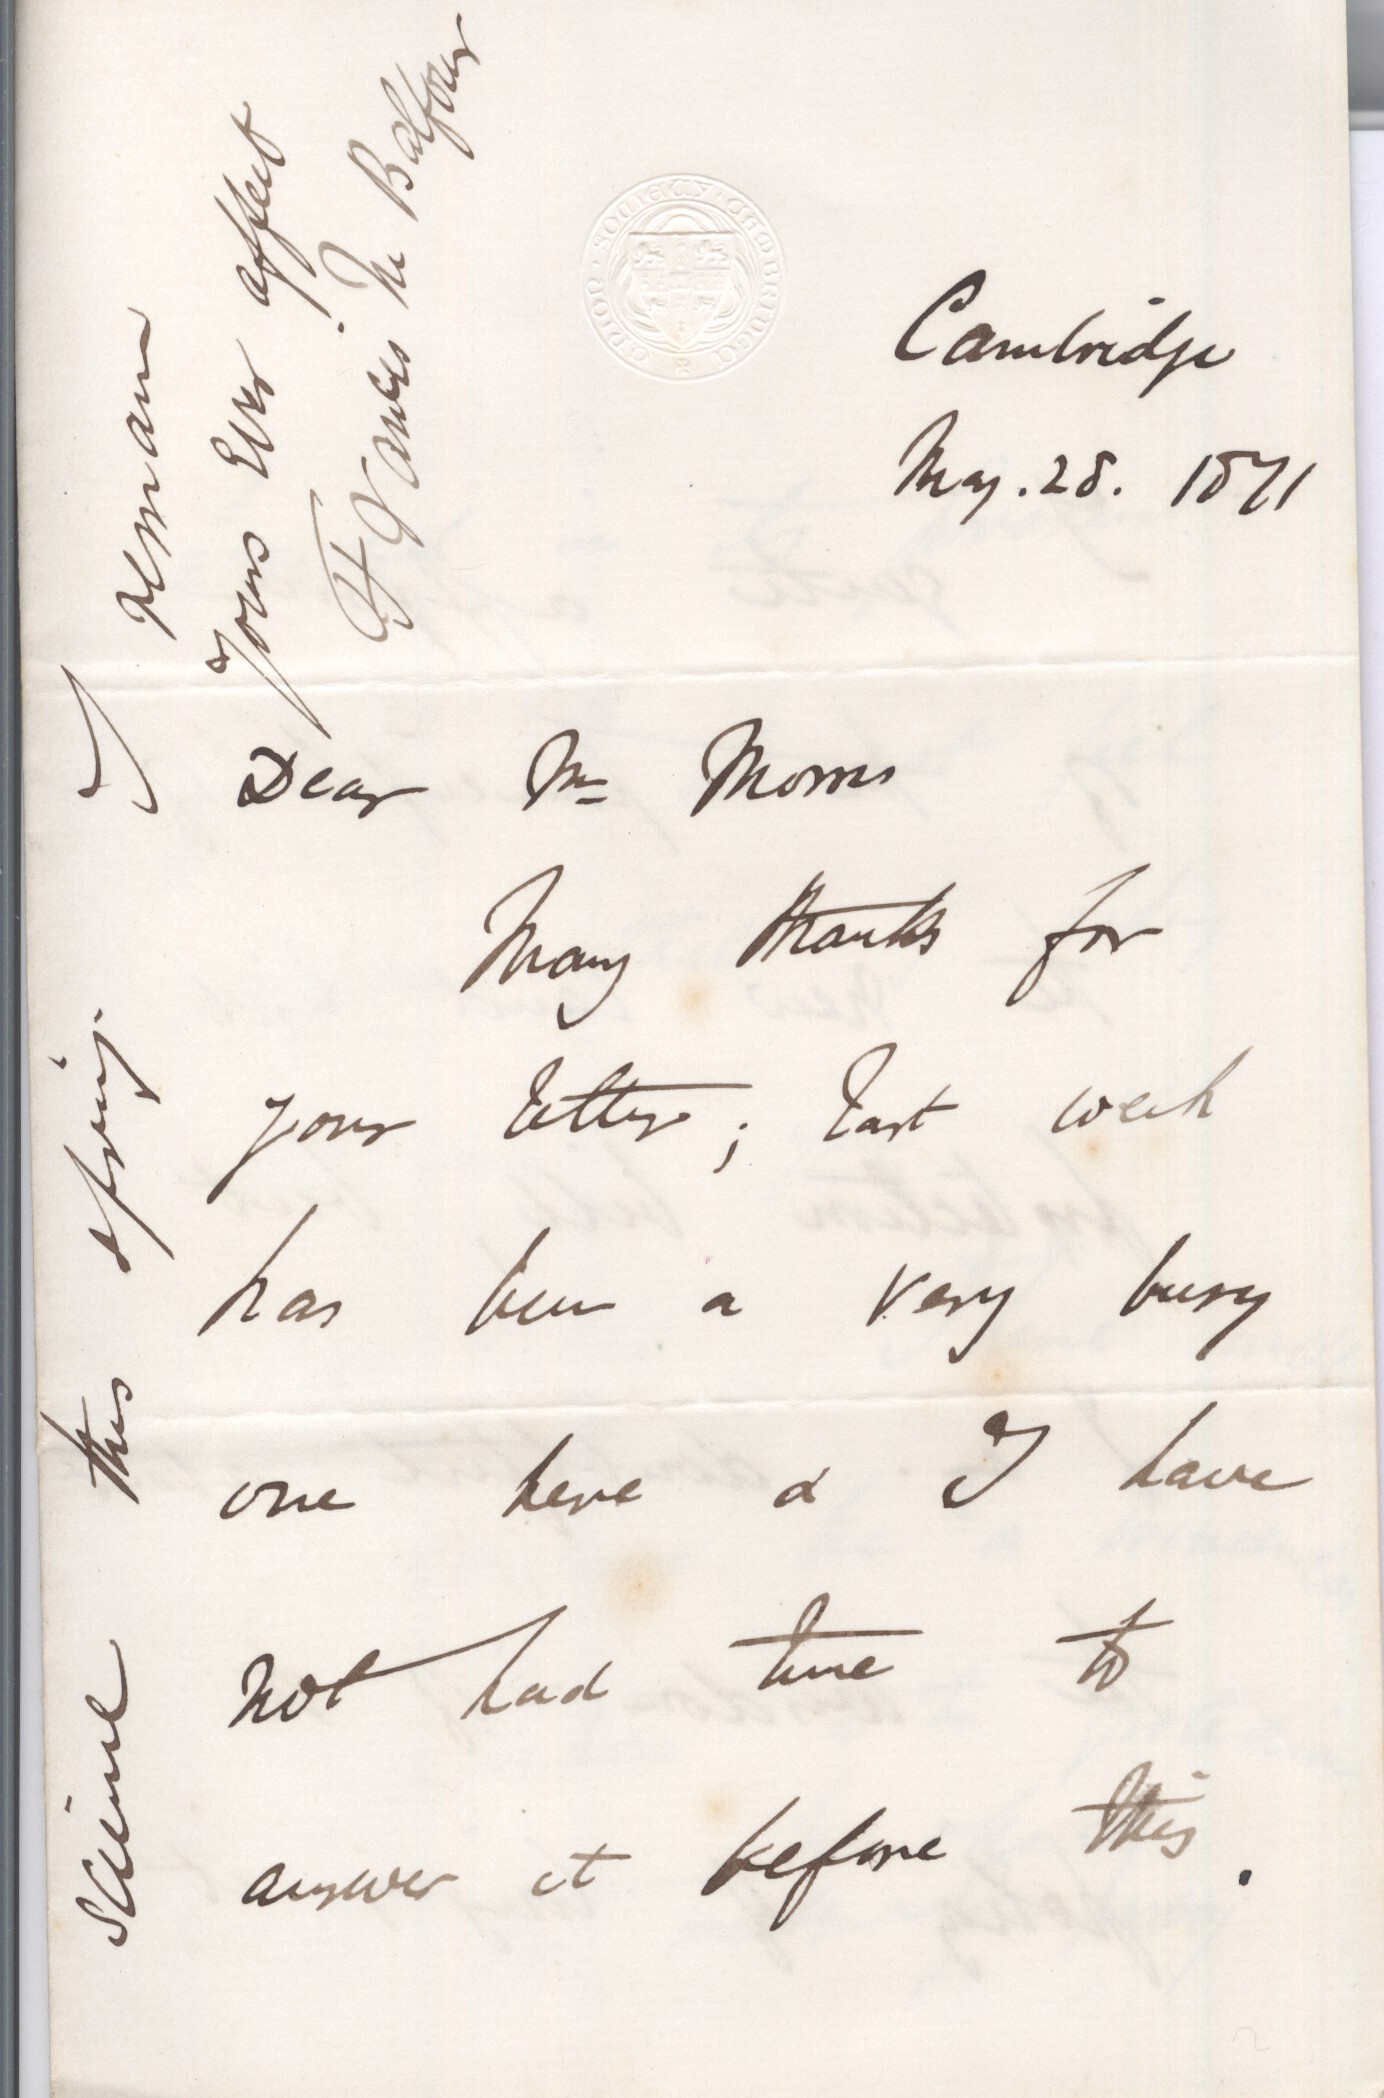 UNION · SOCIETY · CAMBRIDGE
Cambridge
May. 28. 1871
Dear Mr Morris
Many thanks for
your letter; last week
has been a very busy
one here & I have
not had time to
answer it before this.
science this spring. I
remain
Yours Ever affect
Francis M Balfour